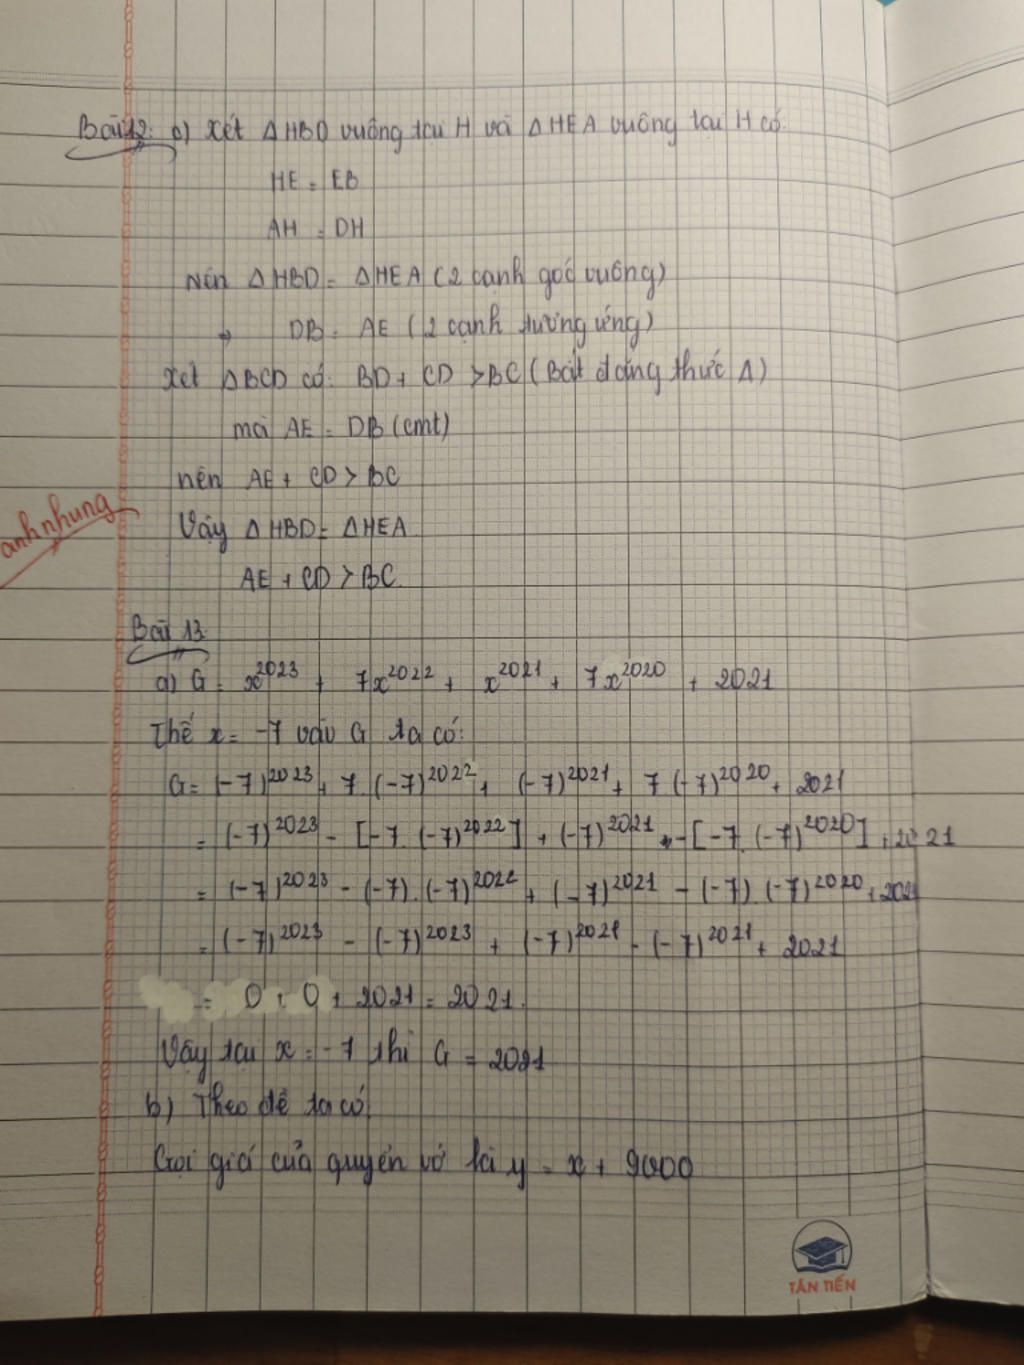 Bài 12: c) Xét ΔHBD vuông tại H và ΔHEA vuông tại H có:
HE = EB
AH = DH
Nên ΔHBD = ΔHEA (2 cạnh góc vuông)
→ DB = AE (2 cạnh tương ứng)
Xét ΔBCD có: BD + CD > BC (Bất đẳng thức Δ)
mà AE = DB (cmt)
nên AE + CD > BC
anhnhung
Vậy ΔHBD = ΔHEA
AE + CD > BC
Bài 13
a) G = x²⁰²³ + 7x²⁰²² + x²⁰²¹ + 7x²⁰²⁰ + 2021
Thế x = -7 vào G ta có:
G = (-7)²⁰²³ + 7.(-7)²⁰²² + (-7)²⁰²¹ + 7(-7)²⁰²⁰ + 2021
= (-7)²⁰²³ - [-7.(-7)²⁰²²] + (-7)²⁰²¹ - [-7.(-7)²⁰²⁰] + 2021
= (-7)²⁰²³ - (-7).(-7)²⁰²² + (-7)²⁰²¹ - (-7).(-7)²⁰²⁰ + 2021
= (-7)²⁰²³ - (-7)²⁰²³ + (-7)²⁰²¹ - (-7)²⁰²¹ + 2021
= 0 + 0 + 2021 = 2021.
Vậy tại x = -7 thì G = 2021
b) Theo đề ta có:
Gọi giá của quyển vở là y = x + 9000
TÂN TIẾN